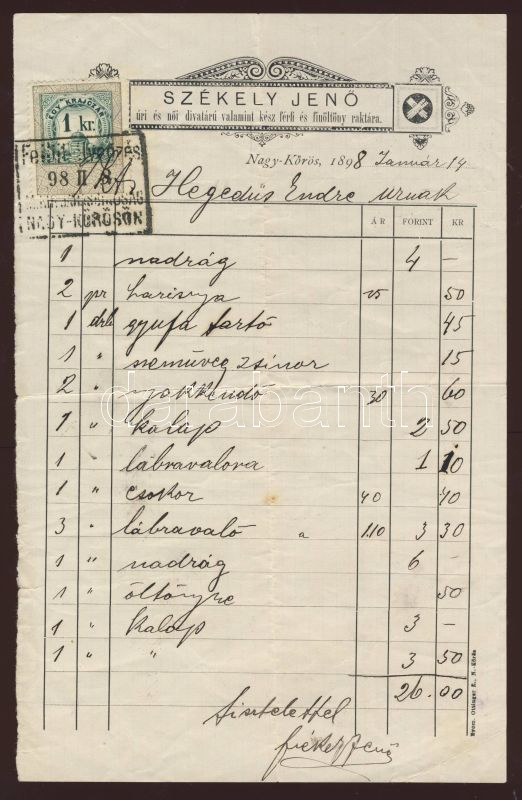 EGY KRAJCZÁR
1 kr.
SZÉKELY JENŐ
úri és női divatárú valamint kész férfi és finöltöny raktára.
Nagy-Kőrös, 1898 Január 14
98 II 8
NAGY-KŐRÖSÖN
Hegedüs Endre urnak
ÁR FORINT KR
1 nadrág 4 –
2 pr harisnya 25 50
1 drb gyufa tartó 45
1 " zsinor 15
2 " nyakkendő 30 60
1 " kalap 2 50
1 lábravalora 1 10
1 " csokor 40 40
3 " lábravaló a 1.10 3 30
1 " nadrág 6 –
1 " öltönyre 50
1 " kalap 3 –
1 " " 3 50
26.00
tisztelettel
Székely Jenő
Nyom. Ottinger E., N.-Kőrös
darabanth